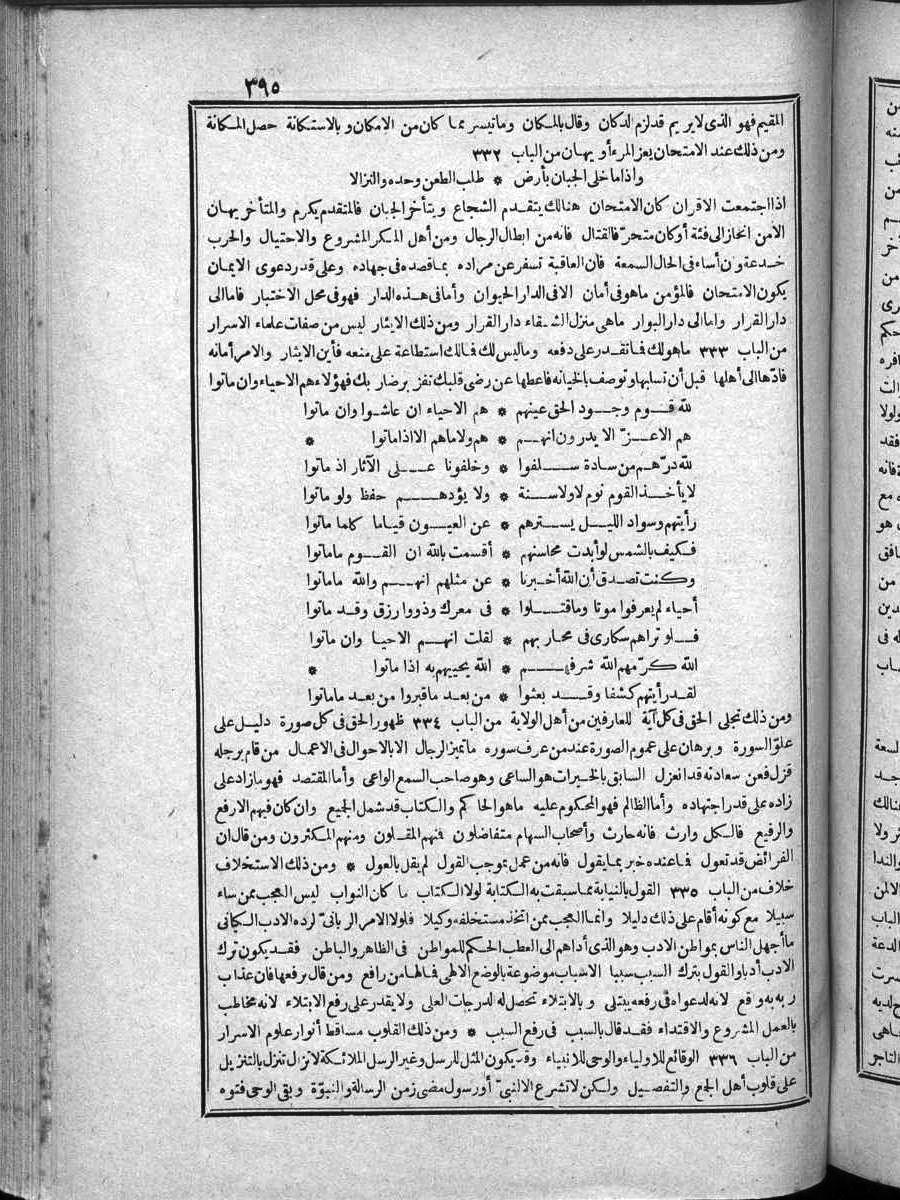 ٣٩٥
المقيم فهو الذى لا يريم قد لزم الدكان وقال بالمكان وما تيسر مما كان من الامكان وبالاستكانة حصل المكانة
ومن ذلك عند الامتحان يعز المرء أو يهان من الباب ٣٣٢
واذا ما خلى الجبان بأرض * طلب الطعن وحده والنزالا
اذا اجتمعت الاقران كان الامتحان هنالك يتقدم الشجاع ويتأخر الجبان فالمتقدم يكرم والمتأخر يهان
الا من انحاز الى فئة أو كان متحرّ فا لقتال فانه من ابطال الرجال ومن أهل المكر المشروع والاحتيال والحرب
خدعة وان أساء فى الحال السمعة فان العاقبة تسفر عن مراده بما قصده فى جهاده وعلى قدر دعوى الايمان
يكون الامتحان فالمؤمن ماهو فى أمان الا فى الدار الحيوان وأما فى هذه الدار فهو فى محل الاختبار فاما الى
دار القرار واما الى دار البوار ماهى منزل الشقاء دار القرار ومن ذلك الايثار ليس من صفات علماء الاسرار
من الباب ٣٣٣ ما هو لك فما تقدر على دفعه وما ليس لك فمالك استطاعة على منعه فأين الايثار والامر أمانه
فأدّها الى أهلها قبل أن تسلبها وتوصف بالخيانه فاعطها عن رضى قلبك تفز برضا ربك فهؤلاء هم الاحياء وان ماتوا
لله قوم وجود الحق عينهم * هم الاحياء ان عاشوا وان ماتوا
هم الاعزّ الا يدرون انهم * هم ولا ماهم الا اذا ماتوا *
لله درّهم من سادة سلفوا * وخلفونا على الآثار اذ ماتوا
لا يأخذ القوم نوم لا ولا سنة * ولا يؤدهم حفظ ولو ماتوا
رأيتهم وسواد الليل يسترهم * عن العيون قياما كلما ماتوا
فكيف بالشمس لو أبدت محاسنهم * أقسمت بالله ان القوم ماماتوا
وكنت تصدق أن الله أخبرنا * عن مثلهم انهم والله ماماتوا
أحياء لم يعرفوا موتا وما قتلوا * فى معرك وذووا رزق وقد ماتوا
فلو تراهم سكارى فى محاربهم * لقلت انهم الاحيا وان ماتوا
الله كرّمهم الله شرفهم * الله يحييهم به اذا ماتوا *
لقد رأيتهم كشفا وقد بعثوا * من بعد ما قبروا من بعد ماماتوا
ومن ذلك تجلى الحق فى كل آية للعارفين من أهل الولاية من الباب ٣٣٤ ظهور الحق فى كل صورة دليل على
علوّ السورة وبرهان على عموم الصورة عند من عرف سوره ما تميز الرجال الا بالاحوال فى الاعمال من قام برجله
قزل فعن سعادته قد انعزل السابق بالخيرات هو الساعى وهو صاحب السمع الواعى وأما المقتصد فهو ما زاد على
زاده على قدر اجتهاده وأما الظالم فهو المحكوم عليه ماهو الحاكم والكتاب قد شمل الجميع وان كان فيهم الارفع
والرفيع فالكل وارث فانه حارث وأصحاب السهام متفاضلون فنهم المقلون ومنهم المكثرون ومن قال ان
الفرائض قد تعول فما عنده خبر بما يقول فانه من عمل بموجب القول لم يقل بالعول * ومن ذلك الاستخلاف
خلاف من الباب ٣٣٥ القول بالنيابة مما سبقت به الكتابة لولا الكتاب ما كان النواب ليس العجب ممن ساء
سبيلا مع كونه أقام على ذلك دليلا وانما العجب ممن اتخذ مستخلفه وكيلا فلولا الامر الربانىّ لرده الادب الكيانى
ما أجهل الناس بمواطن الادب وهو الذى أداهم الى العطب الحكم للمواطن فى الظاهر والباطن فقد يكون ترك
الادب أدبا والقول بترك السبب سببا الاسباب موضوعة بالوضع الالهى فمالها من رافع ومن قال برفعها فان عذاب
ربه به واقع لانه لدعواه فى رفعه يبتلى وبالابتلاء تحصل له الدرجات العلى ولا يقدر على رفع الابتلاء لانه مخاطب
بالعمل المشروع والاقتداء فقد قال بالسبب فى رفع السبب * ومن ذلك القلوب مساقط أنوار علوم الاسرار
من الباب ٣٣٦ الوقائع للاولياء والوحى للانبياء وقد يكون المثل للرسل وغير الرسل الملائكة لا تزال تنزل بالتنزيل
على قلوب أهل الجمع والتفصيل ولكن لا تشرع الا لنبىّ أو رسول مضى زمن الرسالة والنبوّة وبقى الوحى فتوه